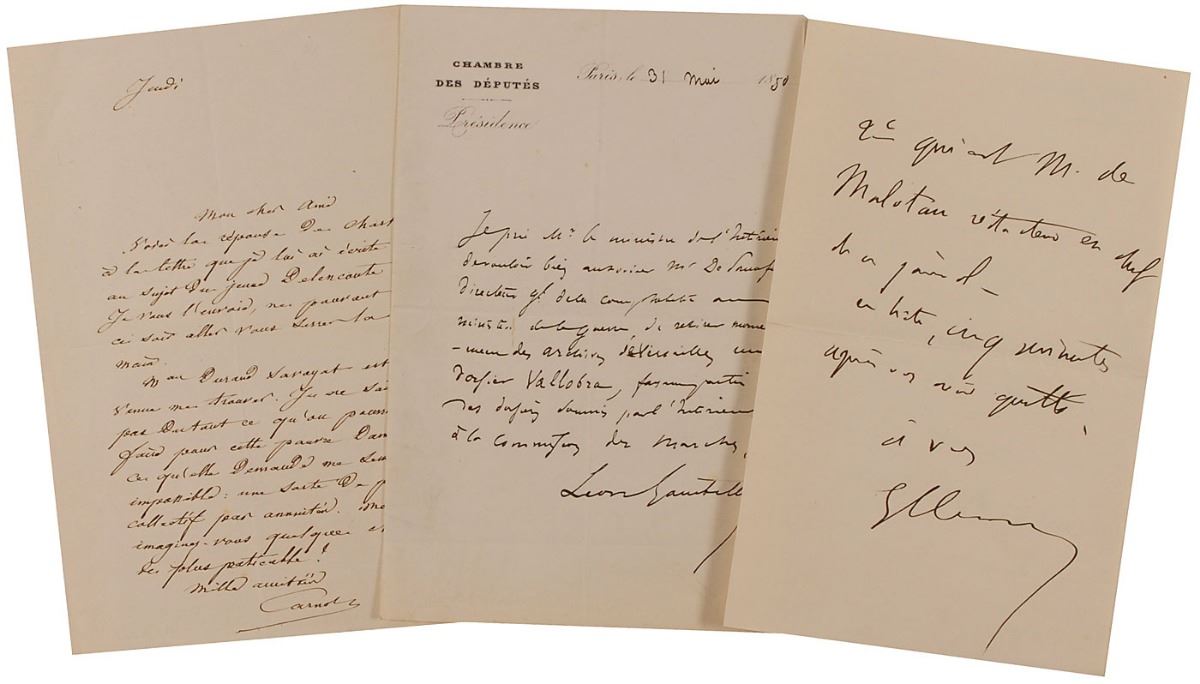 Jeudi
Mon cher Ami
Voici la réponse de
à la lettre que je lui ai écrite
au sujet du jeune Delencoute
Je vous l'envoie, ne pouvant
ce soir aller vous serrer la
main.
Mme Durand Savoyat est
venue me trouver. Je ne sais
pas du tout ce qu'on
faire pour cette pauvre Dam
ce qu'elle demande me
impossible: une sorte de
collectif par annuités.
imaginez-vous quelque
des plus praticable!
Mille amitiés
Carnot
CHAMBRE
DES DÉPUTÉS
Présidence
Paris, le 31 Mai 18
Je prie Mr le ministre de l'Intérieu
de vouloir bien autoriser Mr De
Directeur gl de la comptabilité au
ministère de la guerre, de retirer
-ment des archives de Versailles un
dossier Vallobra, faisant partie
des dossiers fournis par l'Intérieur
à la commission des Marchés.
Leon Gambett
qui est M. de
Molotau rédacteur en chef
du journal
en hâte, cinq minutes
après vous avoir quitté,
à vous